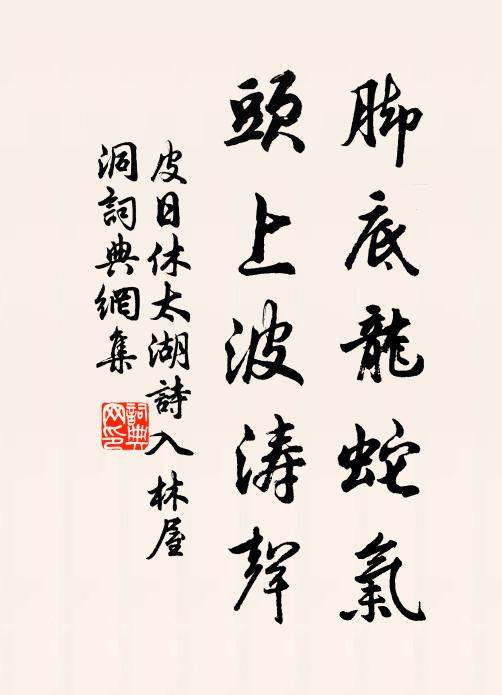 脚底龍蛇氣
頭上波涛聲
皮日休太湖詩入林屋
洞詞典網集
詞典
网印